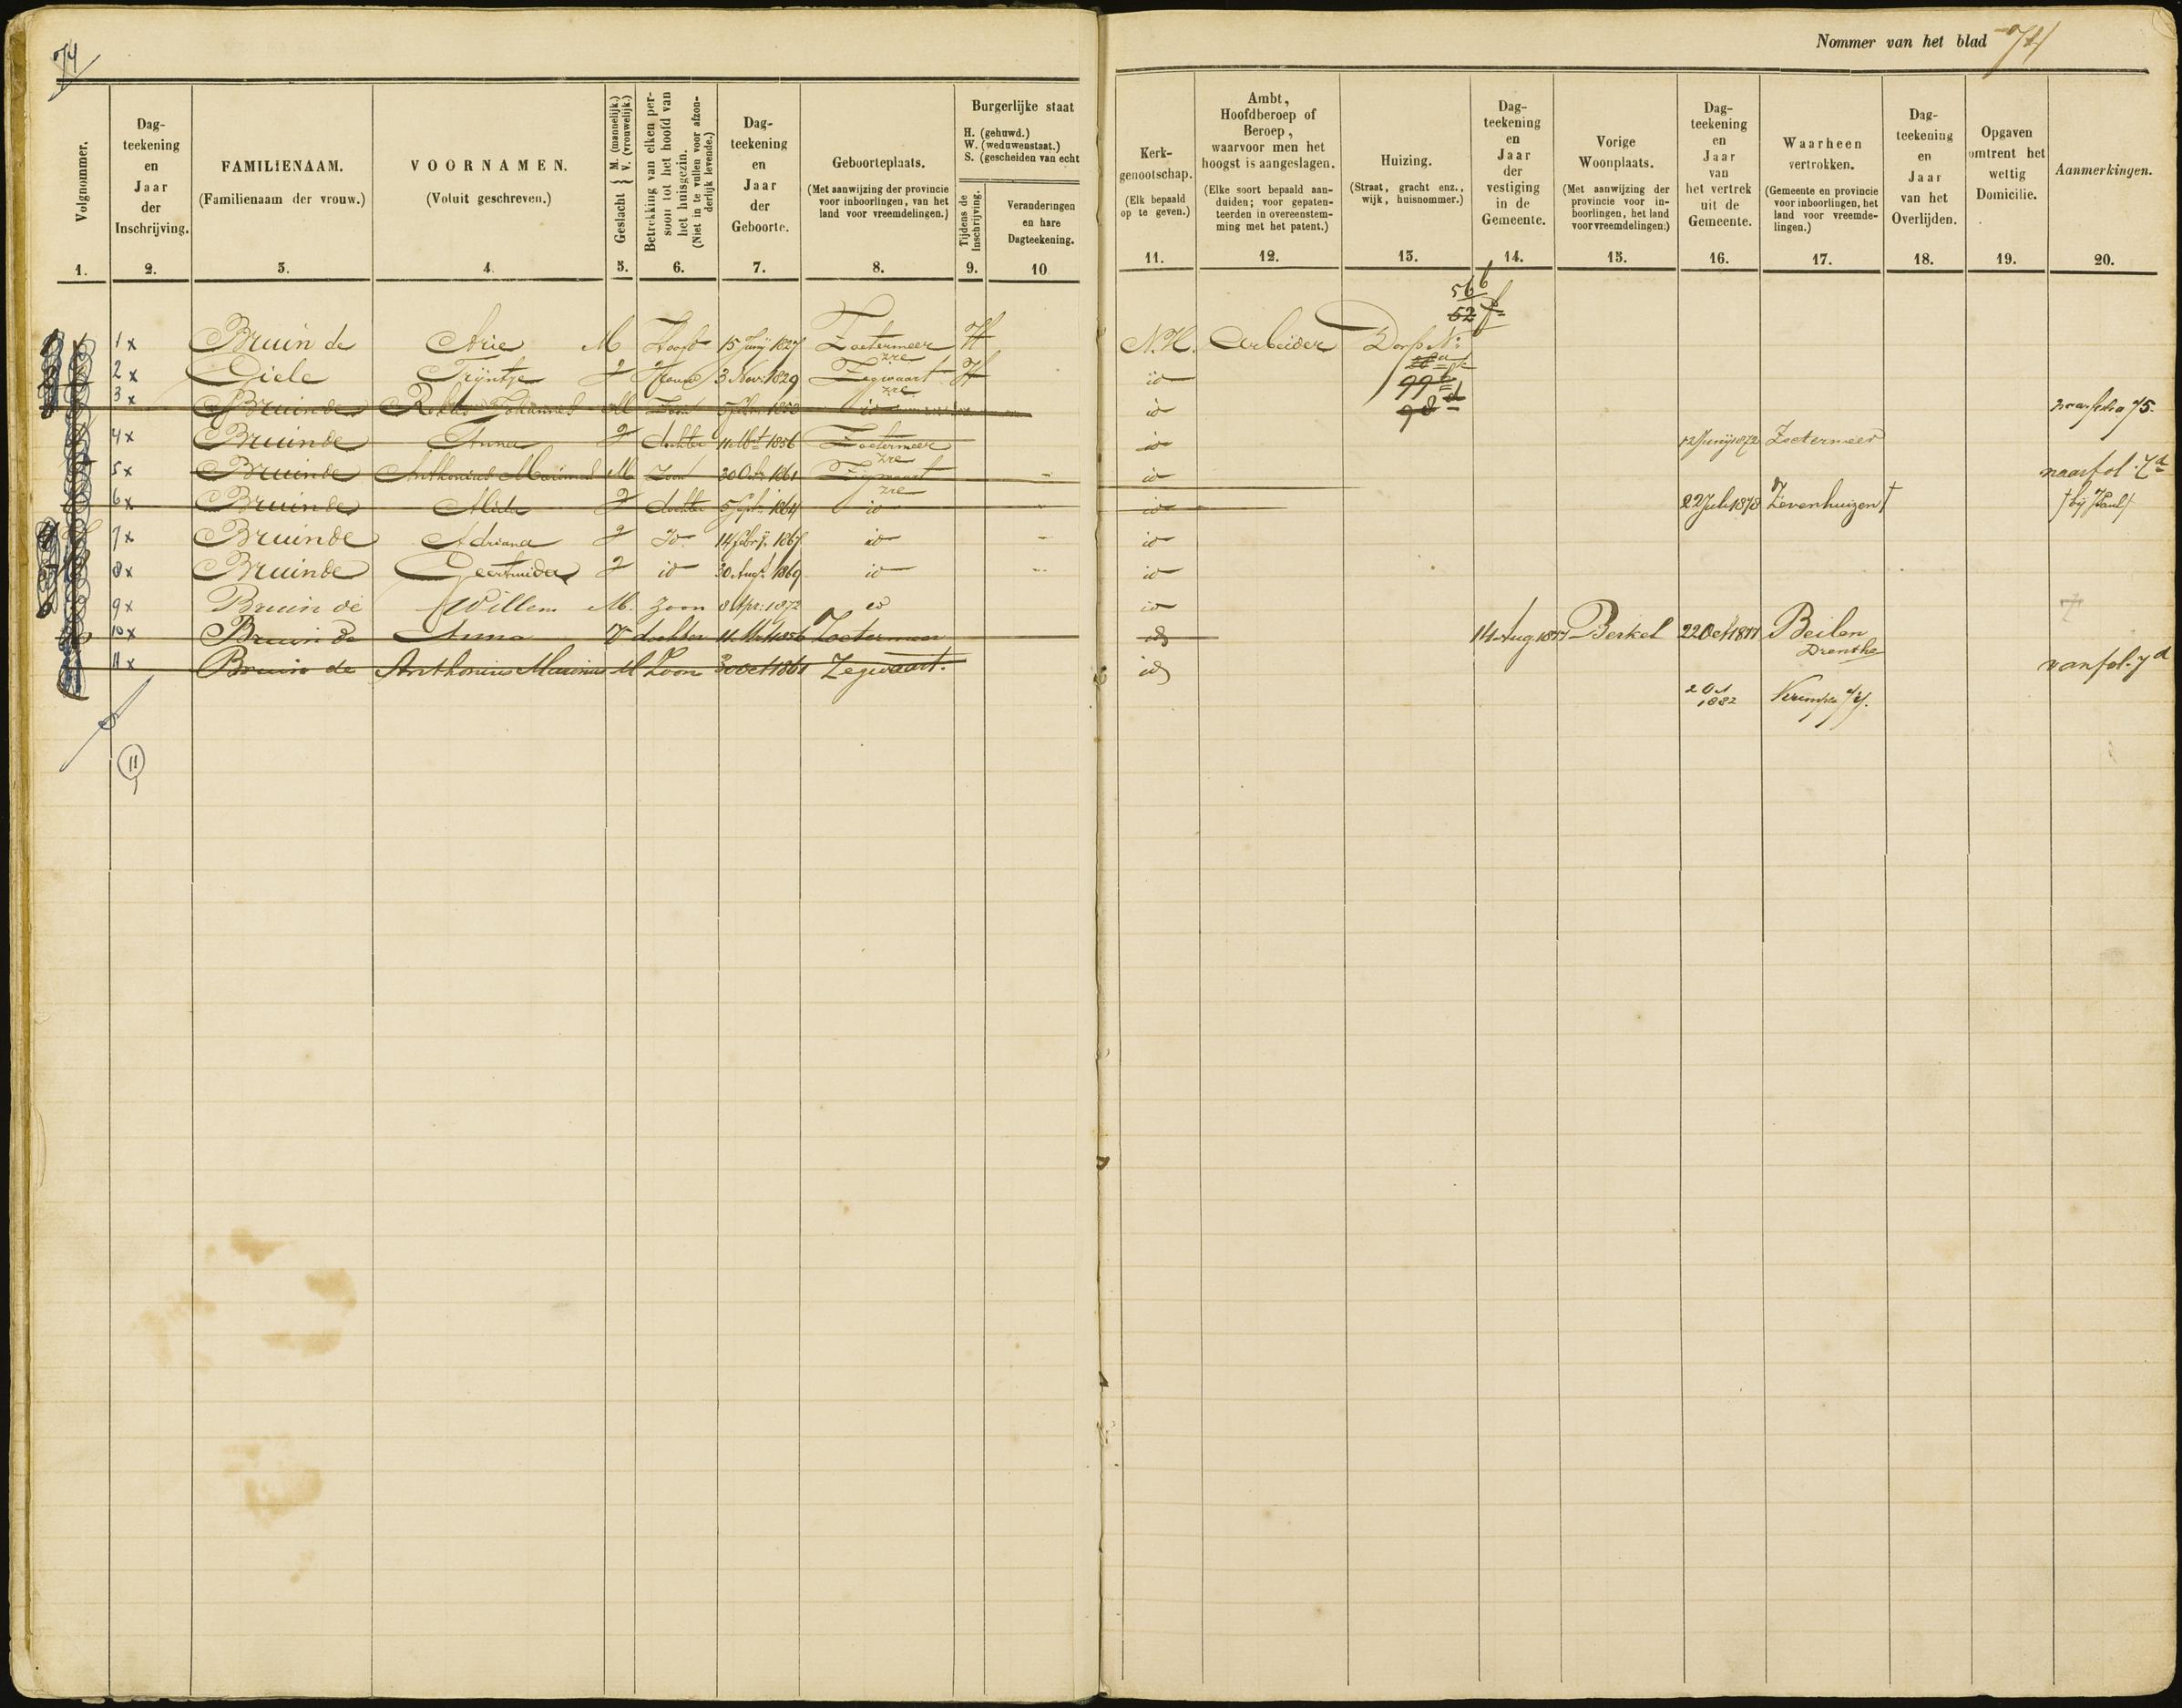 74
Nommer van het blad 74
Volgnommer.
1.
Dag-
teekening
en
Jaar
der
Inschrijving.
2.
FAMILIENAAM.
(Familienaam der vrouw.)
3.
VOORNAMEN.
(Voluit geschreven.)
4.
Geslacht { M. (mannelijk.) V. (vrouwelijk.)
5.
Betrekking van elken per-
soon tot het hoofd van
het huisgezin.
(Niet in te vullen voor afzon-
derlijk levende.)
6.
Dag-
teekening
en
Jaar
der
Geboorte.
7.
Geboorteplaats.
(Met aanwijzing der provincie
voor inboorlingen, van het
land voor vreemdelingen.)
8.
Burgerlijke staat
H. (gehuwd.)
W. (weduwenstaat.)
S. (gescheiden van echt
Tijdens de
Inschrijving.
9.
Veranderingen
en hare
Dagteekening.
10
Kerk-
genootschap.
(Elk bepaald
op te geven.)
11.
Ambt,
Hoofdberoep of
Beroep,
waarvoor men het
hoogst is aangeslagen.
(Elke soort bepaald aan-
duiden; voor gepaten-
teerden in overeenstem-
ming met het patent.)
12.
Huizing.
(Straat, gracht enz.,
wijk, huisnommer.)
13.
Dag-
teekening
en
Jaar
der
vestiging
in de
Gemeente.
14.
Vorige
Woonplaats.
(Met aanwijzing der
provincie voor in-
boorlingen, het land
voor vreemdelingen.)
15.
Dag-
teekening
en
Jaar
van
het vertrek
uit de
Gemeente.
16.
Waarheen
vertrokken.
(Gemeente en provincie
voor inboorlingen, het
land voor vreemde-
lingen.)
17.
Dag-
teekening
en
Jaar
van het
Overlijden.
18.
Opgaven
omtrent het
wettig
Domicilie.
19.
Aanmerkingen.
20.
56 b
52 f
1 x Bruin de Arie M Hoofd 15 Junij 1827 Zoetermeer H N.H. Arbeider Dorp No
zre
2 x Giele Trijntje V Vrouw 3 Nov: 1829 Zegwaart H id
zre 99
3 x Bruin de Johannes M Zoon id id 98 d naar folio 75.
4 x Bruin de Anna V dochter 11 Mrt 1856 Zoetermeer id 12 Junij 1872 Zoetermeer
zre
5 x Bruin de Anthonius Marinus M Zoon 30 Oct. 1861 Zegwaart id naar fol. 7d
zre
6 x Bruin de Alida V dochter 5 Sept. 1864 id id 22 Juli 1878 Zevenhuizen †
7 x Bruin de Adriana V Id 14 febrij 1867 id id
8 x Bruin de Geertruida V id 30 Augt 1869 id id
9 x Bruin de Willem M. zoon 8 Apr: 1872 id id
10 x Bruin de Anna V dochter 11 Mrt 1856 Zoetermeer id 14 Aug 1877 Berkel 22 Oct 1877 Beilen
Drenthe
11 x Bruin de Anthonius Marinus M Zoon 30 Oct 1861 Zegwaart. id van fol. 7d
2 Oct
1882
11